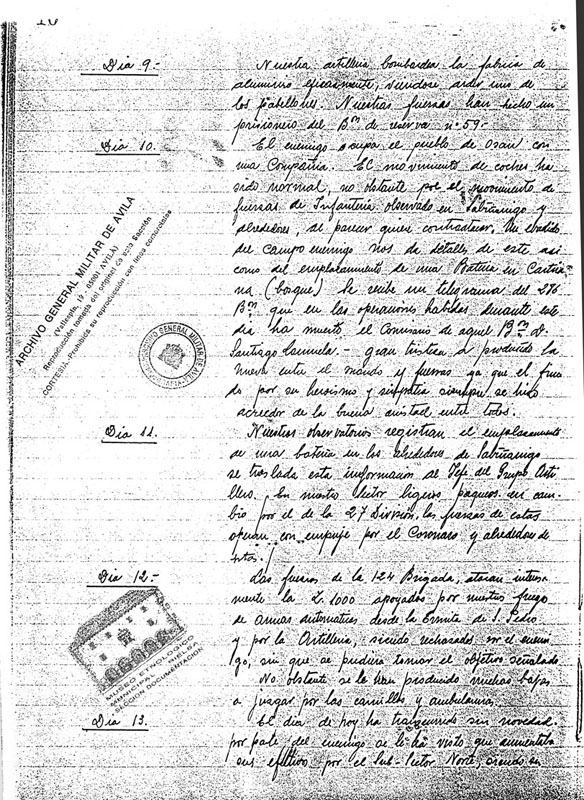 Dia 9.-
Nuestra artilleria bombardea la fabrica de
aluminio eficazmente, viendose arder uno de
los pabellones. Nuestras fuerzas han hecho un
prisionero del Bon de reserva nº 59.-
Dia 10.
El enemigo ocupa el pueblo de Osan con
una Compañia. El movimiento de coches ha
sido normal, no obstante por el movimiento de
fuerzas de Infanteria observado en Sabiñanigo y
alrededores, al parecer quiere contraatacar. Un evadido
del campo enemigo nos da detalles de este asi
como del emplazamiento de una Bateria en Cartiri
na (bosque) Se recibe un telegrama del 276
Bon que en las operaciones habidas durante este
dia ha muerto el Comisario de aquel Bon D.
Santiago - gran tristeza a producido la
nueva entre el mando y fuerzas ya que el fina
do por su heroismo y simpatia siempre se hizo
acreedor de la buena amistad entre todos.
Dia 11.
Nuestros observatorios registran el emplazamiento
de una bateria en los alrededores de Sabiñanigo
se traslada esta informacion al Jefe del Grupo Arti
llero. En nuestro sector ligeros paqueos en cam-
bio por el de la 27 Division, las fuerzas de estas
operan con empuje por el Coronazo y alrededores de
estos.
Dia 12.-
Las fuerzas de la 124 Brigada, atacan intensa
mente la L. 1000 apoyados por nuestro fuego
de armas automaticas desde la Ermita de S. Pedro
y por la Artilleria, siendo rechazados por el enemi
go, sin que se pudiera tomar el objetivo señalado
No obstante se le han producido muchas bajas
a juzgar por las camillas y ambulancias.
Dia 13.
El dia de hoy ha transcurrido sin novedad
por parte del enemigo se le ha visto que aumentaba
sus efectivos por el Sub-Sector Norte, siendo su
ARCHIVO GENERAL MILITAR DE AVILA
(Vallespin, 19, 05001 AVILA)
Reproducción tomada del original de esta Sección
CORTESIA. Prohibida su reproducción con fines comerciales
ARCHIVO GENERAL MILITAR DE AVILA
MUSEO ETNOLOGICO
MUNICIPAL
SECCION DOCUMENTACION